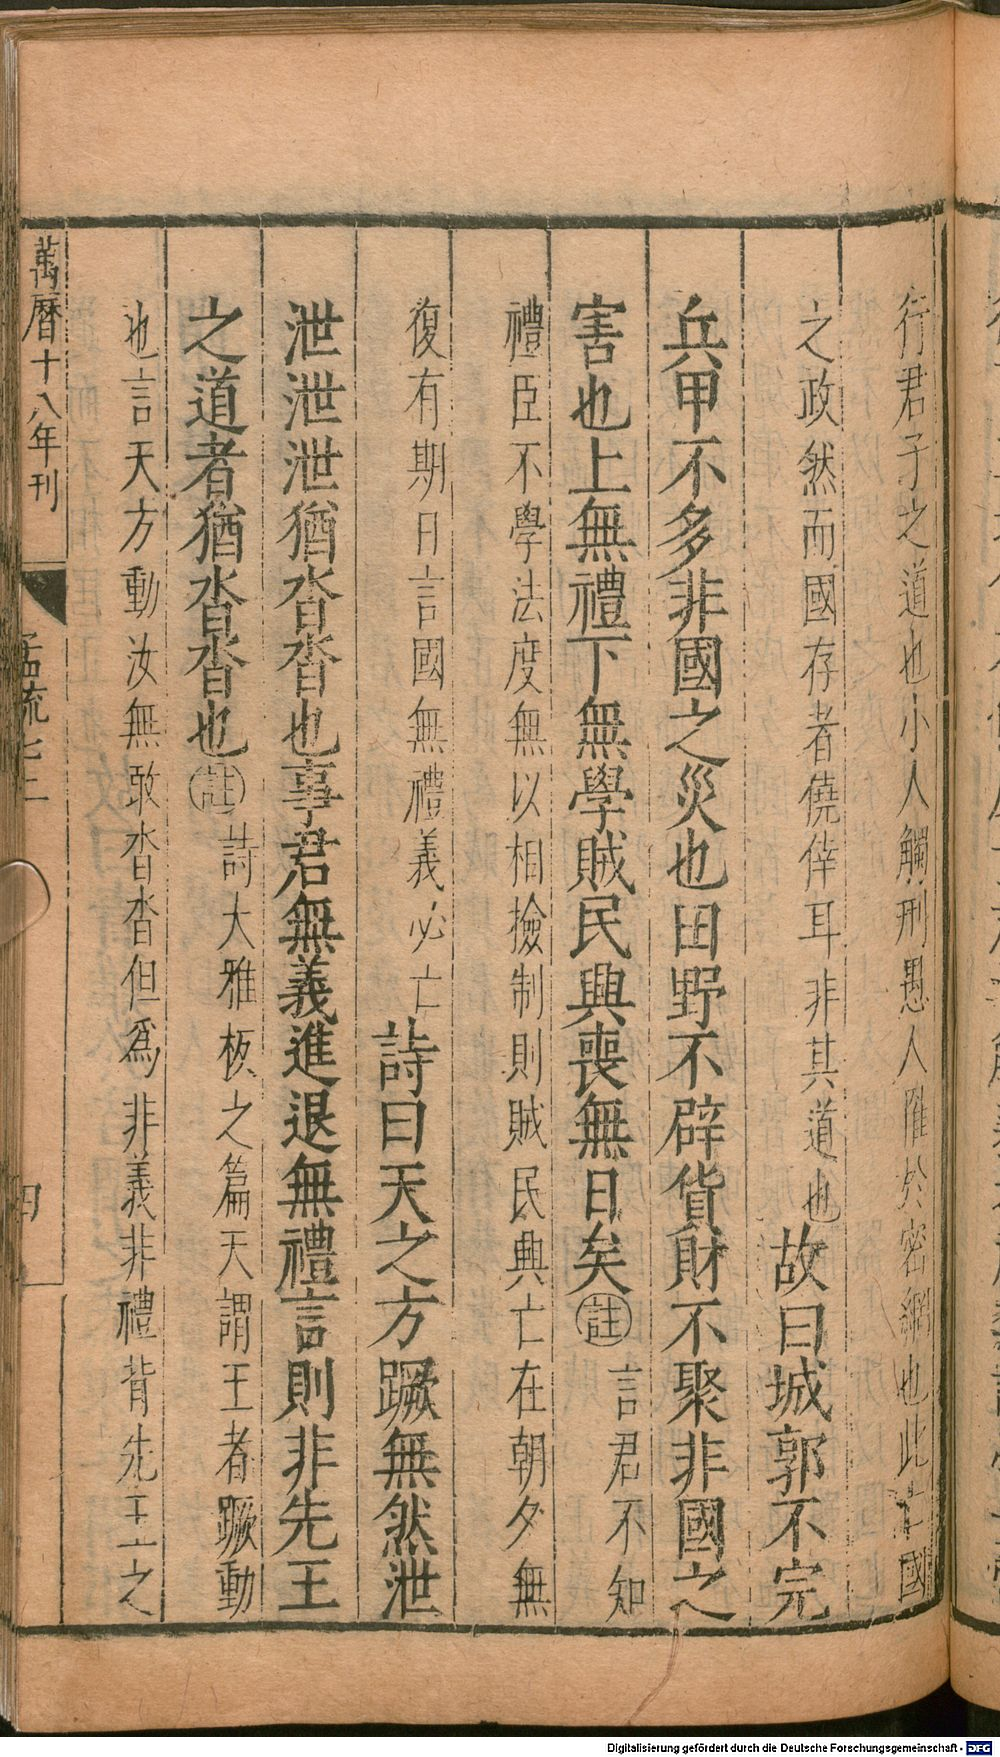 行君子之道也小人觸刑愚人罹於密網也此亡國
之政然而國存者僥倖耳非其道也故曰城郭不完
兵甲不多非國之災也田野不辟貨財不聚非國之
害也上無禮下無學賊民興喪無日矣註言君不知
禮臣不學法度無以相撿制則賊民興亡在朝夕無
復有期日言國無禮義必亡詩曰天之方蹶無然泄
泄泄泄猶沓沓也事君無義進退無禮言則非先王
之道者猶沓沓也註詩大雅板之篇天謂王者蹶動
也言天方動汝無敢沓沓但爲非義非禮背先王之
萬曆十八年刊
孟疏七上
四
Digitalisierung gefördert durch die Deutsche Forschungsgemeinschaft - DFG